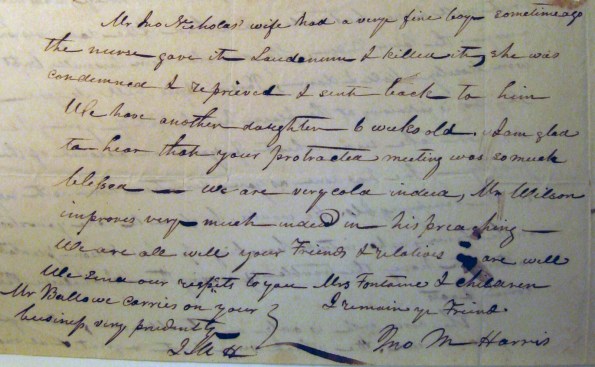 Mr Jno Nicholas' wife had a very fine boy sometime ago
the nurse gave it Laudanum & killed it, she was
condemned & reprieved & sent back to him
We have another daughter 6 weeks old. I am glad
to hear that your protracted meeting was so much
blessed — we are very cold indeed, Mr Wilson
improves very much indeed in his preaching —
We are all well your Friends & relations are well
We send our respits to you Mrs Fontaine & children
I remain yr Friend
Jno M Harris
Mr Ballowe carries on your
business very prudently